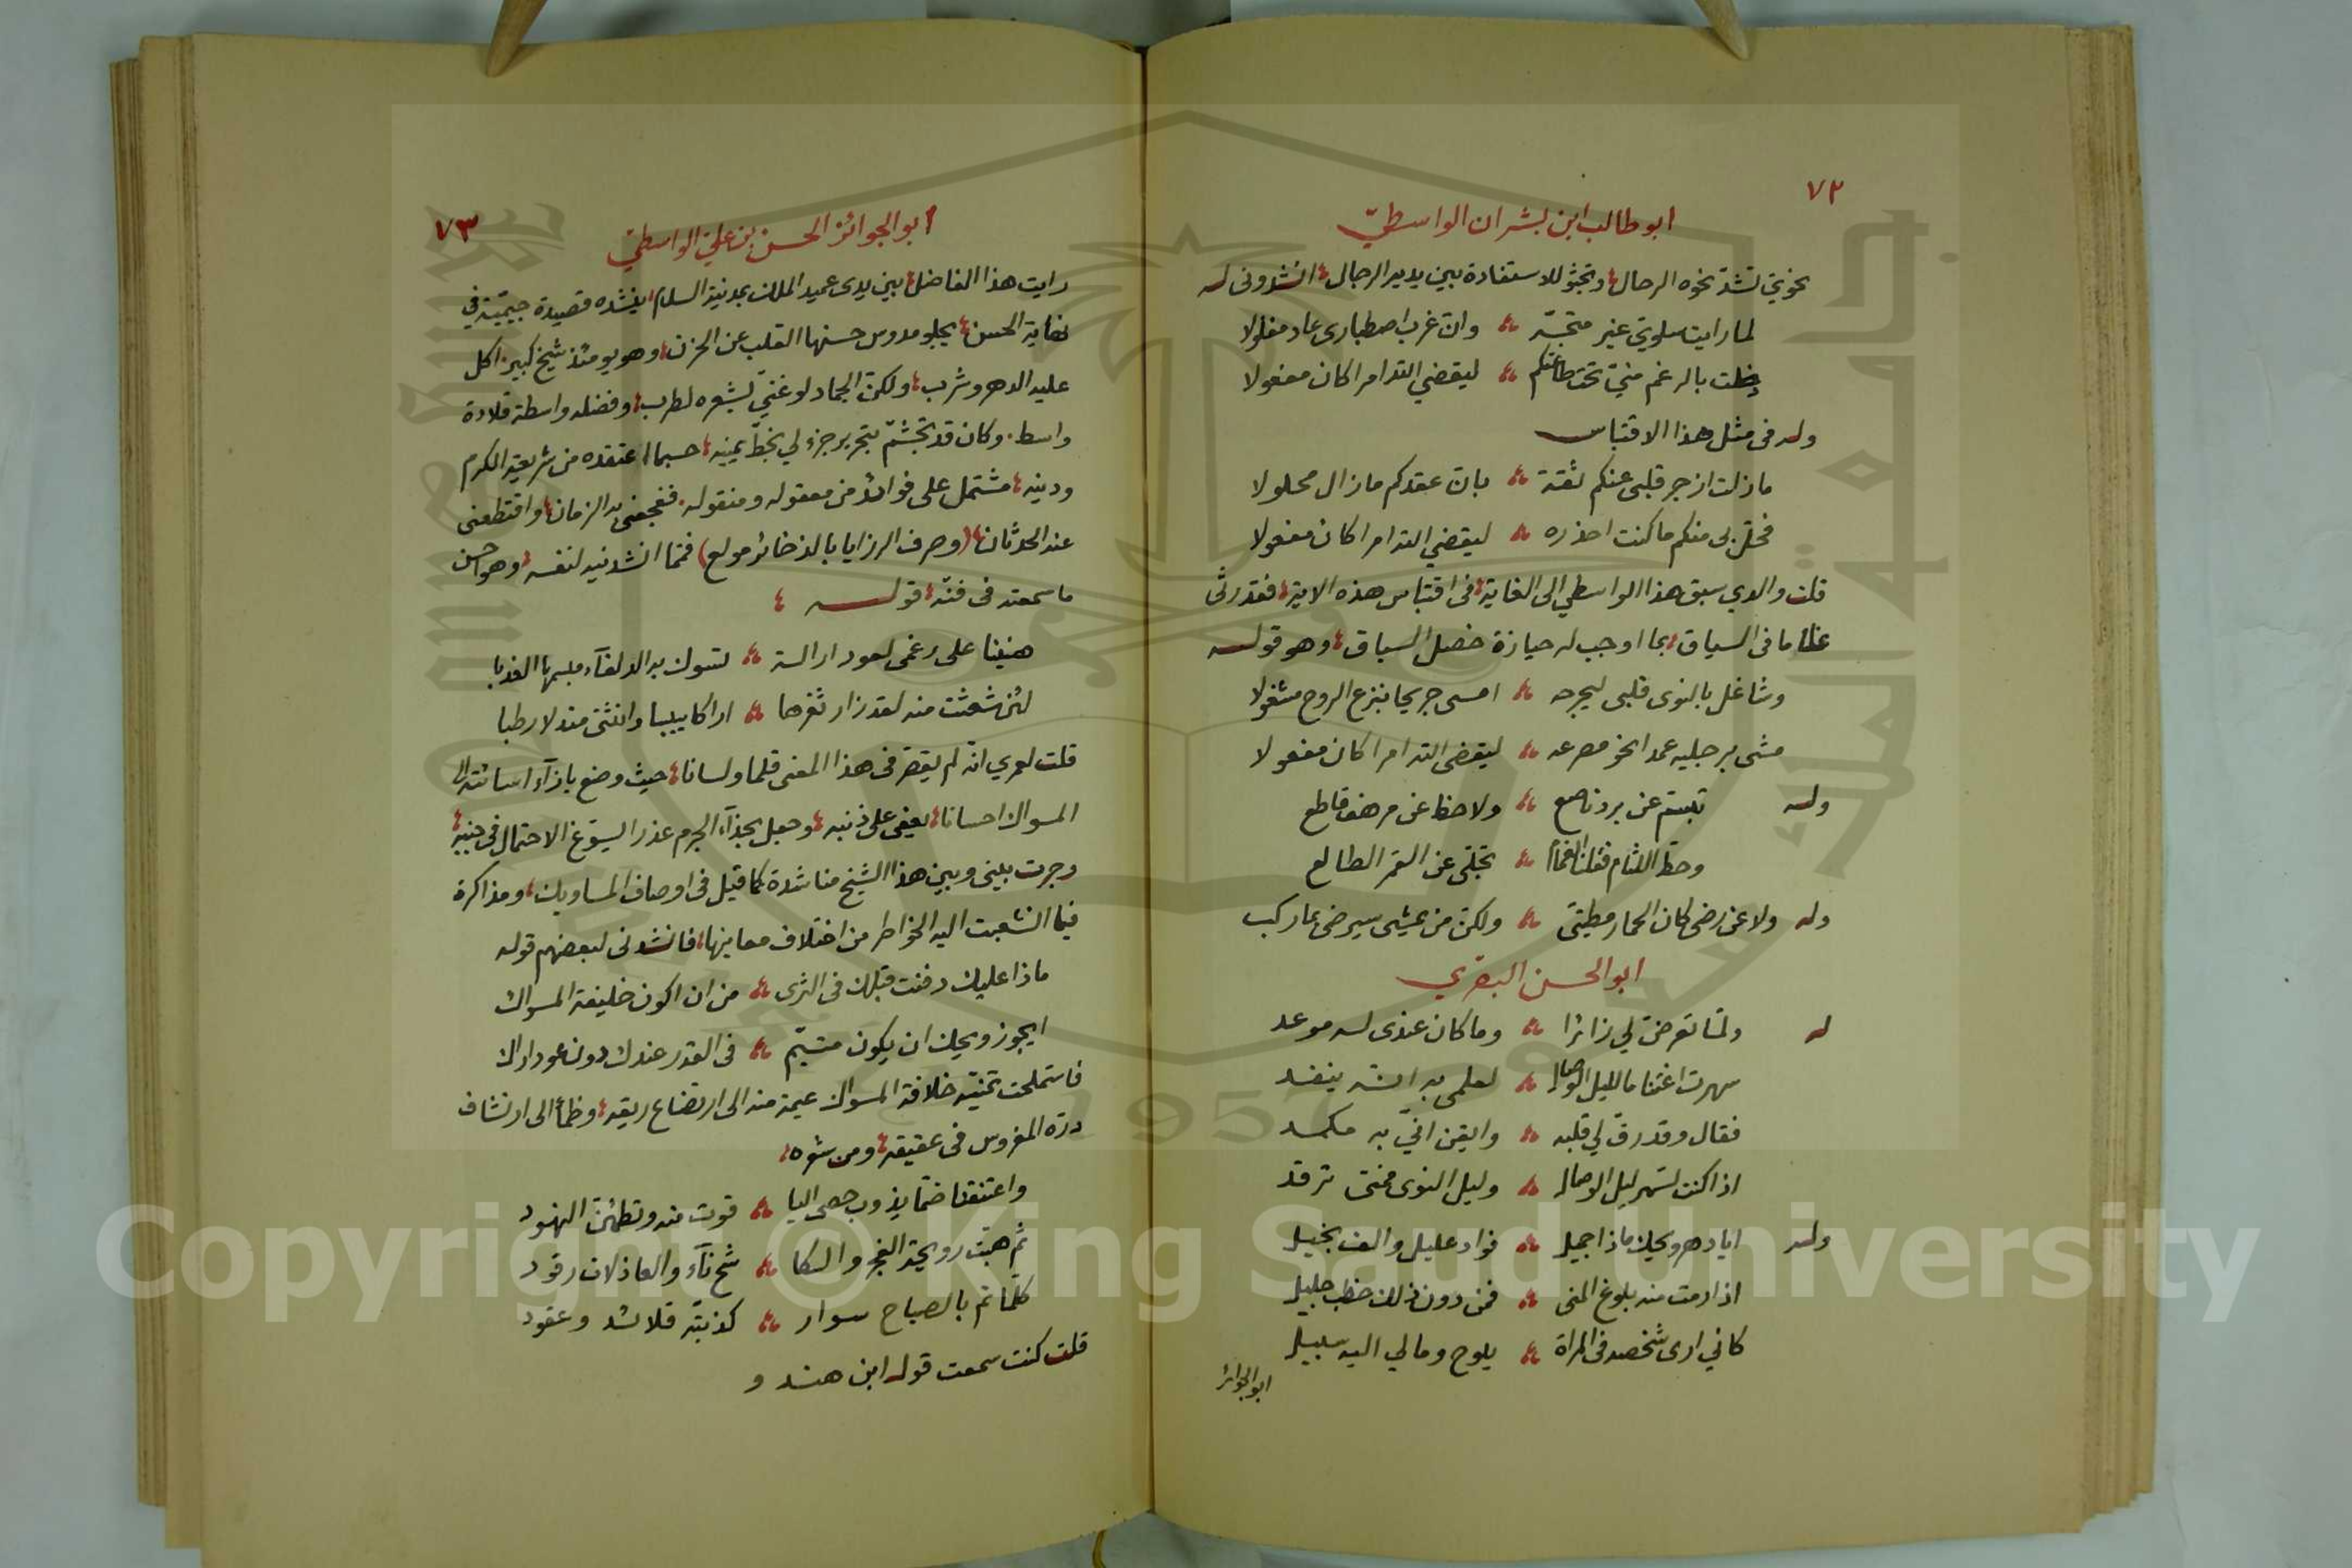 ٧٢
ابو طالب ابن بشران الواسطيّ
نحوي تشدّ نحوه الرحال؛ وتجثو للاستفادة بين يديه الرجال؛ انشدونى له
لما رايت سلوي غير متجه ؞ وان غرب اصطبارى عاد مفلولا
دخلت بالرغم منيّ تحت طاعتكم ؞ ليقضي الله امرا كان مفعولا
وله فى مثل هذا الاقتباس
ما زلت ازجر قلبى عنكم ثقة ؞ بان عقدكم ما زال محلولا
فحل بى منكم ما كنت احذره ؞ ليقضي الله امرا كان مفعولا
قلت والدي سبق هذا الواسطي الى الغاية؛ فى اقتباس هذه الاية؛ فقد رثى
غلاما فى السياق؛ بما اوجب له حيازة خصل السباق؛ وهو قوله
وشاغل بالنوى قلبى ليجرحه ؞ امسى جريحا بنزع الروح مشغولا
مشى برجليه عمدا نحو مصرعه ؞ ليقضى الله امرا كان مفعولا
وله تبسم عن برد ناصع ؞ ولاحظ عن مرهف قاطع
وحط اللثام فقلنا الغمام ؞ تجلى عن القمر الطالع
وله ولا عن رضى كان الحمار مطيتى ؞ ولكن من يمشى سيرضى بما ركب
ابو الحسن البصري
له ولمّا تعرض لي زائرا ؞ وما كان عندى له موعد
سهرت اغتناما لليل الوصال ؞ لعلمى به انه ينفد
فقال وقد رق لي قلبه ؞ وايقن انيّ به مكمد
اذا كنت تسهر ليل الوصال ؞ وليل النوى فمتى ترقد
وله ايا دهر ويحك ماذا جميل ؞ فواد عليل والف بخيل
اذا رمت منه بلوغ المنى ؞ فمن دون ذلك خطب جليل
كاني ارى شخصه فى المراة ؞ يلوح وما لي اليه سبيل
ابو الجوائز
٧٣
ابو الجوائز الحسن بن علي الواسطيّ
رايت هذا الفاضل؛ بين يدى عميد الملك بمدينة السلام؛ ينشده قصيدة جيميّة في
نهاية الحسن؛ يجلو مدوس حسنها القلب عن الحزن؛ وهو يومئذ شيخ كبير. اكل
عليه الدهر وشرب؛ ولكن الجماد لو غنيّ بشعره لطرب؛ وفضله واسطة قلادة
واسط. وكان قد تجشم بتحرير جزء لي بخط يمينه؛ حسبما اعتقده من شريعة الكرم
ودينه؛ مشتمل على فوائد من معقوله ومنقوله. ففجعنى به الزمان؛ واقتطعنى
عنه الحدثان؛ (وصرف الرزايا بالذخائر مولع) فمما انشدنيه لنفسه؛ وهو احسن
ما سمعته فى فنّه؛ قوله؛
هنيئا على رغمى لعود اراكة ؞ تسوك به الدلفاء مبسمها العذبا
لئن شعثت منه لقد زار ثغرها ؞ اراكا يبيبا وانثنى مندلا رطبا
قلت لعمري انه لم يقصر فى هذا المعنى قلما ولسانا؛ حيث وضع بازآء اسائته الى
المسواك احسانا؛ يعفى على ذنبه؛ وجعل بحذآء الجرم عذرا ليسوّغ الاحتمال فى جنبه؛
وجرت بينى وبين هذا الشيخ مناشدة لما قيل فى اوصاف المساويك؛ ومذاكرة
فيما انشعبت اليه الخواطر من اختلاف معاينها؛ فانشدنى لبعضهم قوله
ماذا عليك دفنت قبلك فى الثرى ؞ من ان اكون خليفة المسواك
ايجوز ويحك ان يكون متيّم ؞ فى القدر عندك دون عود اراك
فاستملحت تمنيّه خلافة المسواك عيمة منه الى ارتضاع ريقه؛ وظمأ الى ارتشاف
درّه المغروس فى عقيقه؛ ومن شعره؛
واعتنقنا ضمّا يذوب حصى اليا ؞ قوت منه وتطمئن النهود
ثم هبت رويحة الفجر والسكا ؞ والعاذلات رقود
كلما تم بالصباح سوار ؞ كذبته قلائد وعقود
قلت كنت سمعت قول ابن هندو